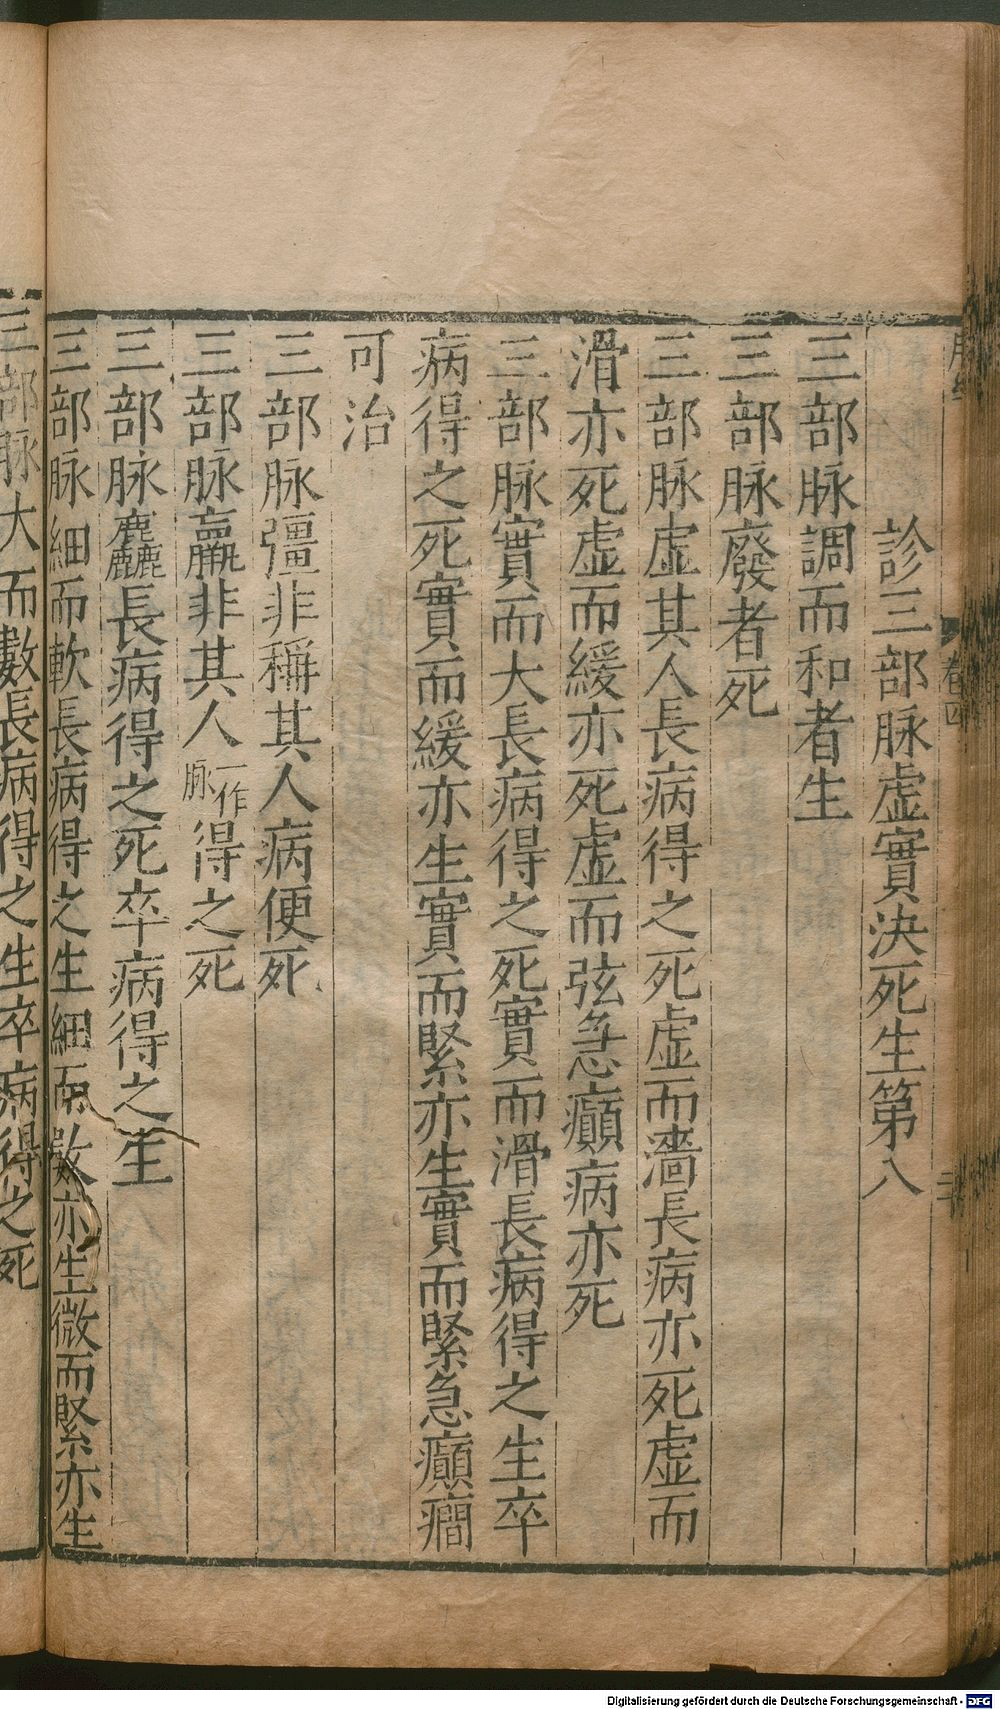 脉經
卷四
診三部脉虛實決死生第八
三部脉調而和者生
三部脉廢者死
三部脉虛其人長病得之死虛而濇長病亦死虛而
滑亦死虛而緩亦死虛而弦急癲病亦死
三部脉實而大長病得之死實而滑長病得之生卒
病得之死實而緩亦生實而緊亦生實而緊急癲癎
可治
三部脉彊非稱其人病便死
三部脉羸非其人一作脉得之死
三部脉麤長病得之死卒病得之生
三部脉細而軟長病得之生細而數亦生微而緊亦生
三部脉大而數長病得之生卒病得之死
Digitalisierung gefördert durch die Deutsche Forschungsgemeinschaft - DFG